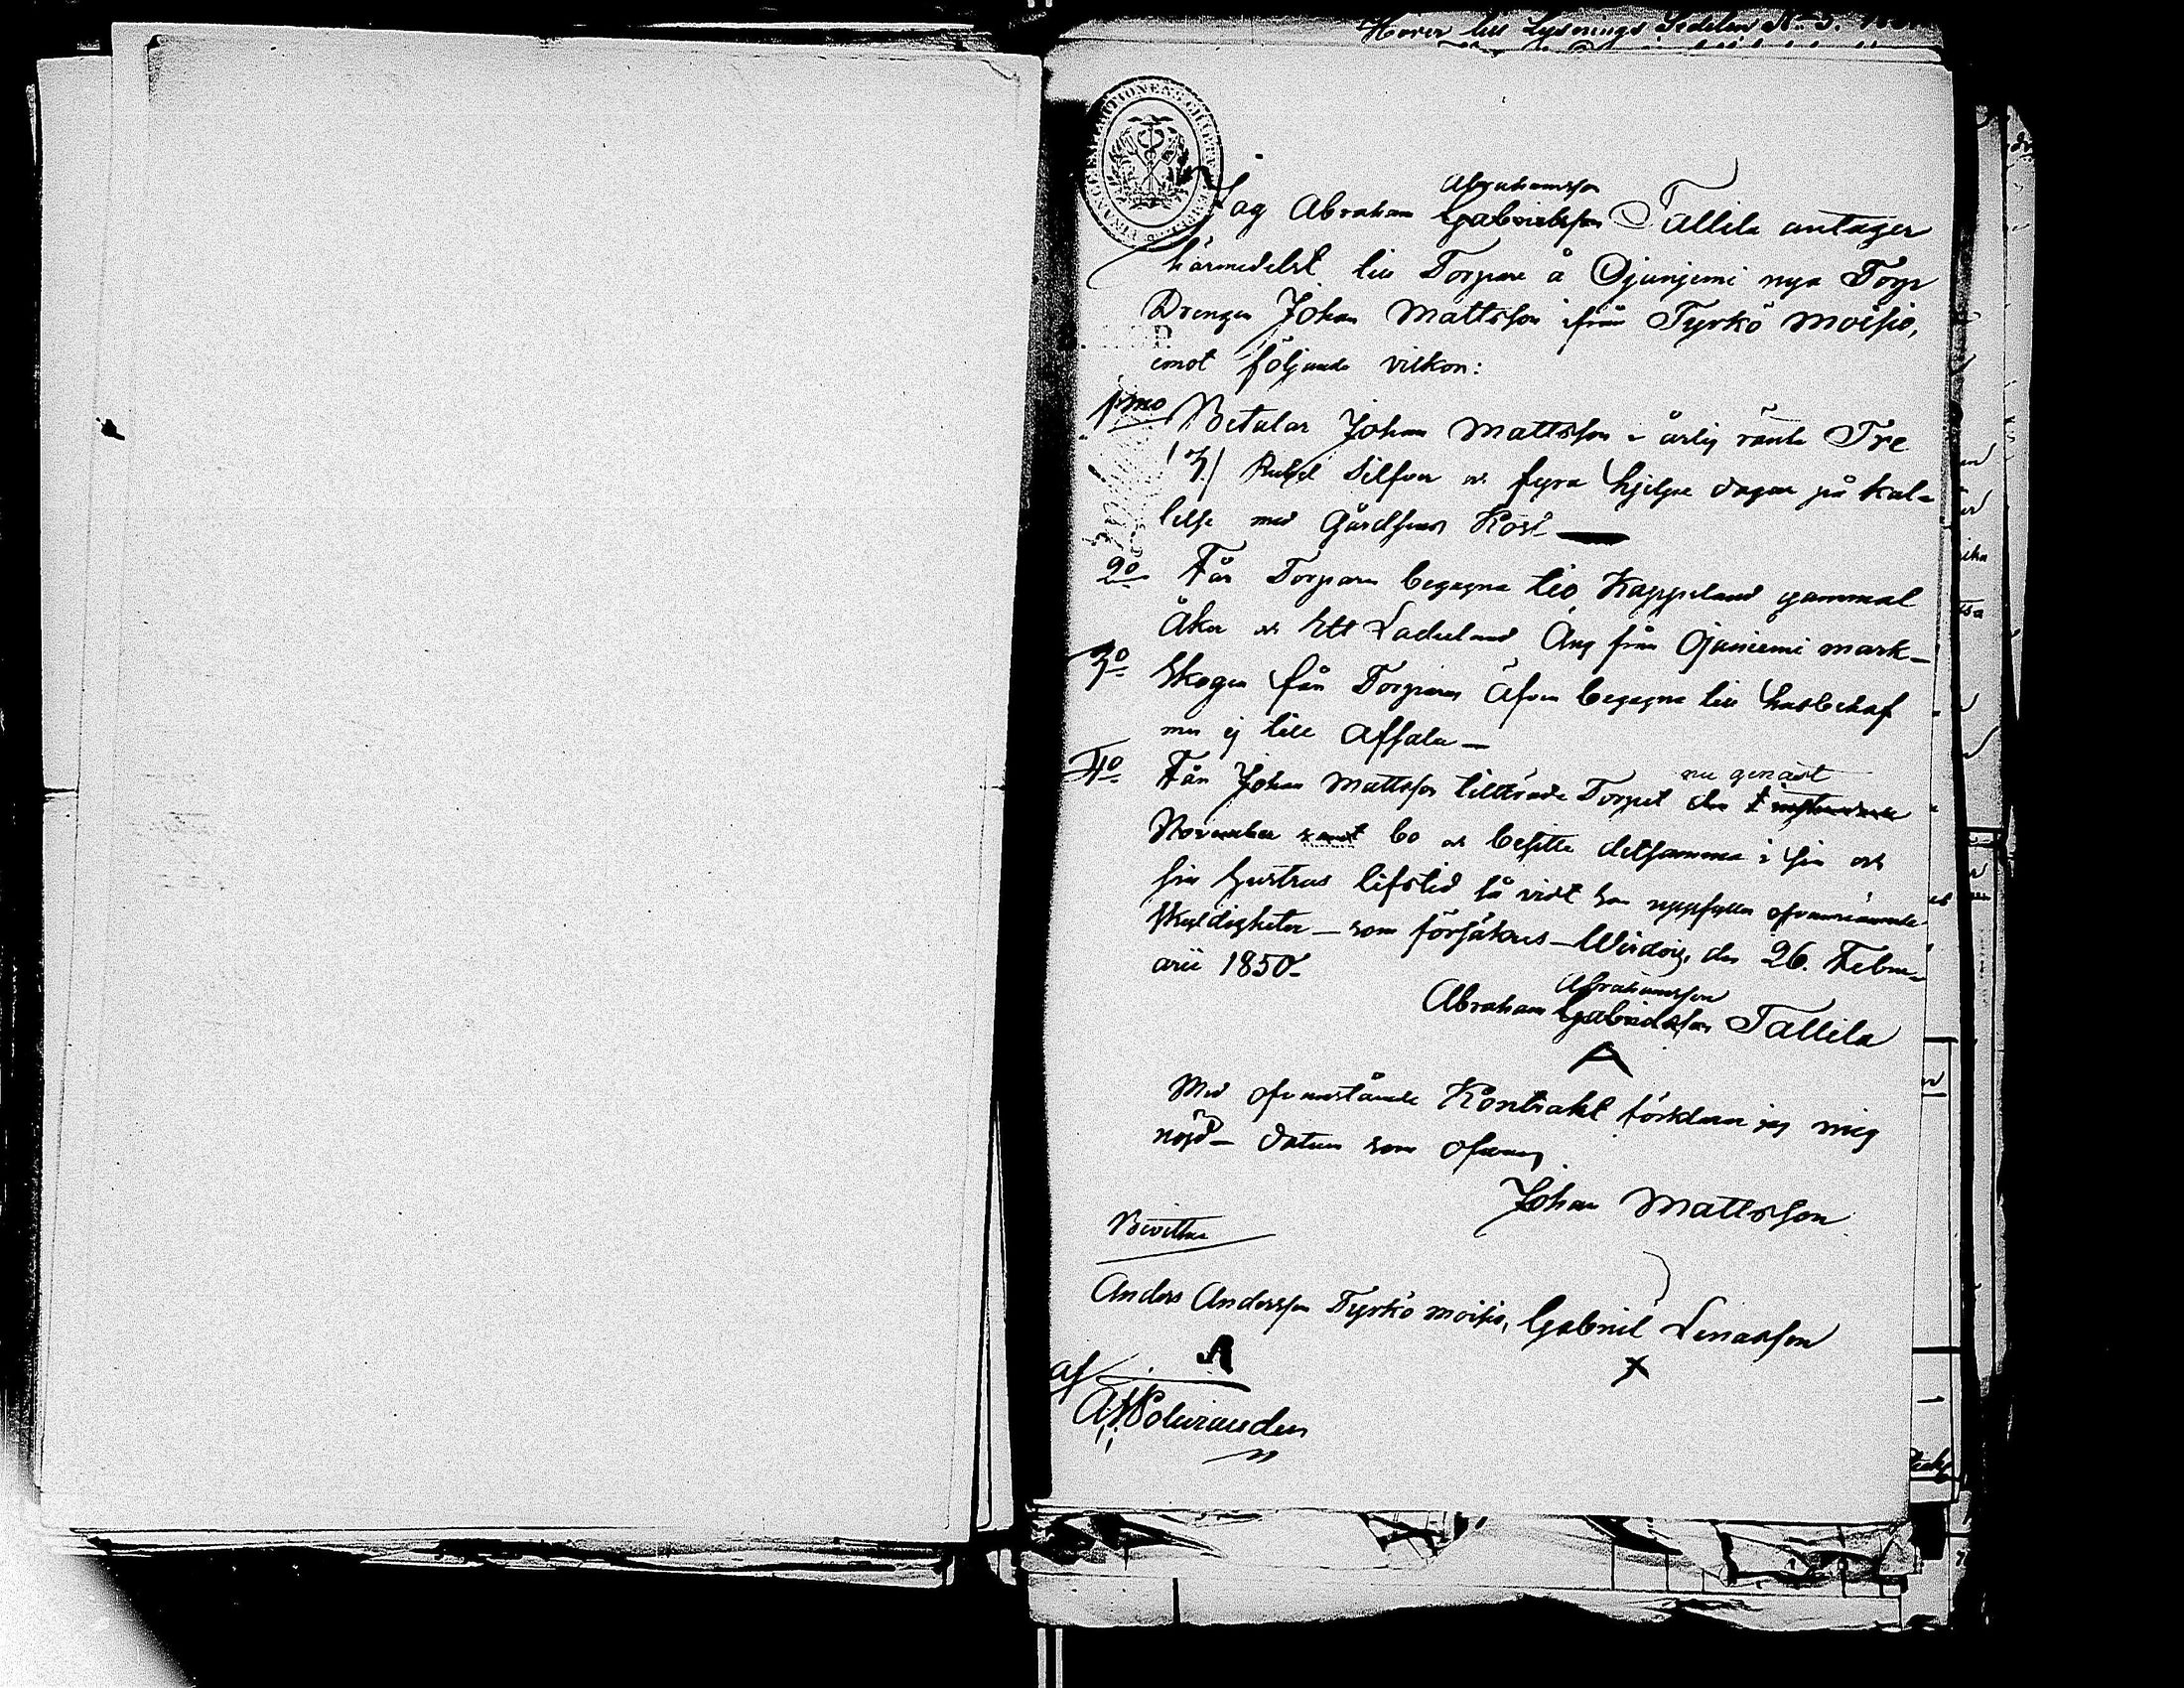 Hörer till Lysnings Sedelen No 3.
Jag Abraham Abrahamsson Gabrielsson Tallila antager
härmedelst till Torpare å Ojanjemi nya Torp
Drengen Johan Mattsson ifrån Tyrkö moisio,
emot följande vilkor:
1mo Betalar Johan Mattsson i årlig ränta Tre
(3) Rubel Silfver och fyra hjelpe dagar på kal-
lelse med Gårdsens Kost —
2o Får Torparen begagna tio Kappeland gammal
Åker och Ett Ladueland Äng från Ojaniemi mark—
3o Skogen får Torparen äfven begagna till husbehof
men ej till Afsalu —
4o Får Johan Mattsson tillträda Torpet den 1 nu genast
November samt bo och besitta detsamma i sin och
sin hustrus lifstid så vidt han uppfyller ofvannämnde
skyldigheter — som försäkras — Wirdois den 26. Febru-
arii 1850—
Abraham Abrahamsson Gabrielsson Tallila
A
Med ofvanstående Kontrakt förklarar jag mig
nöjd — datum som ofvan
Johan Mattsson
Bevittna
Anders Andersson Tyrkö moisio, Gabriel Lenasson
A x
af